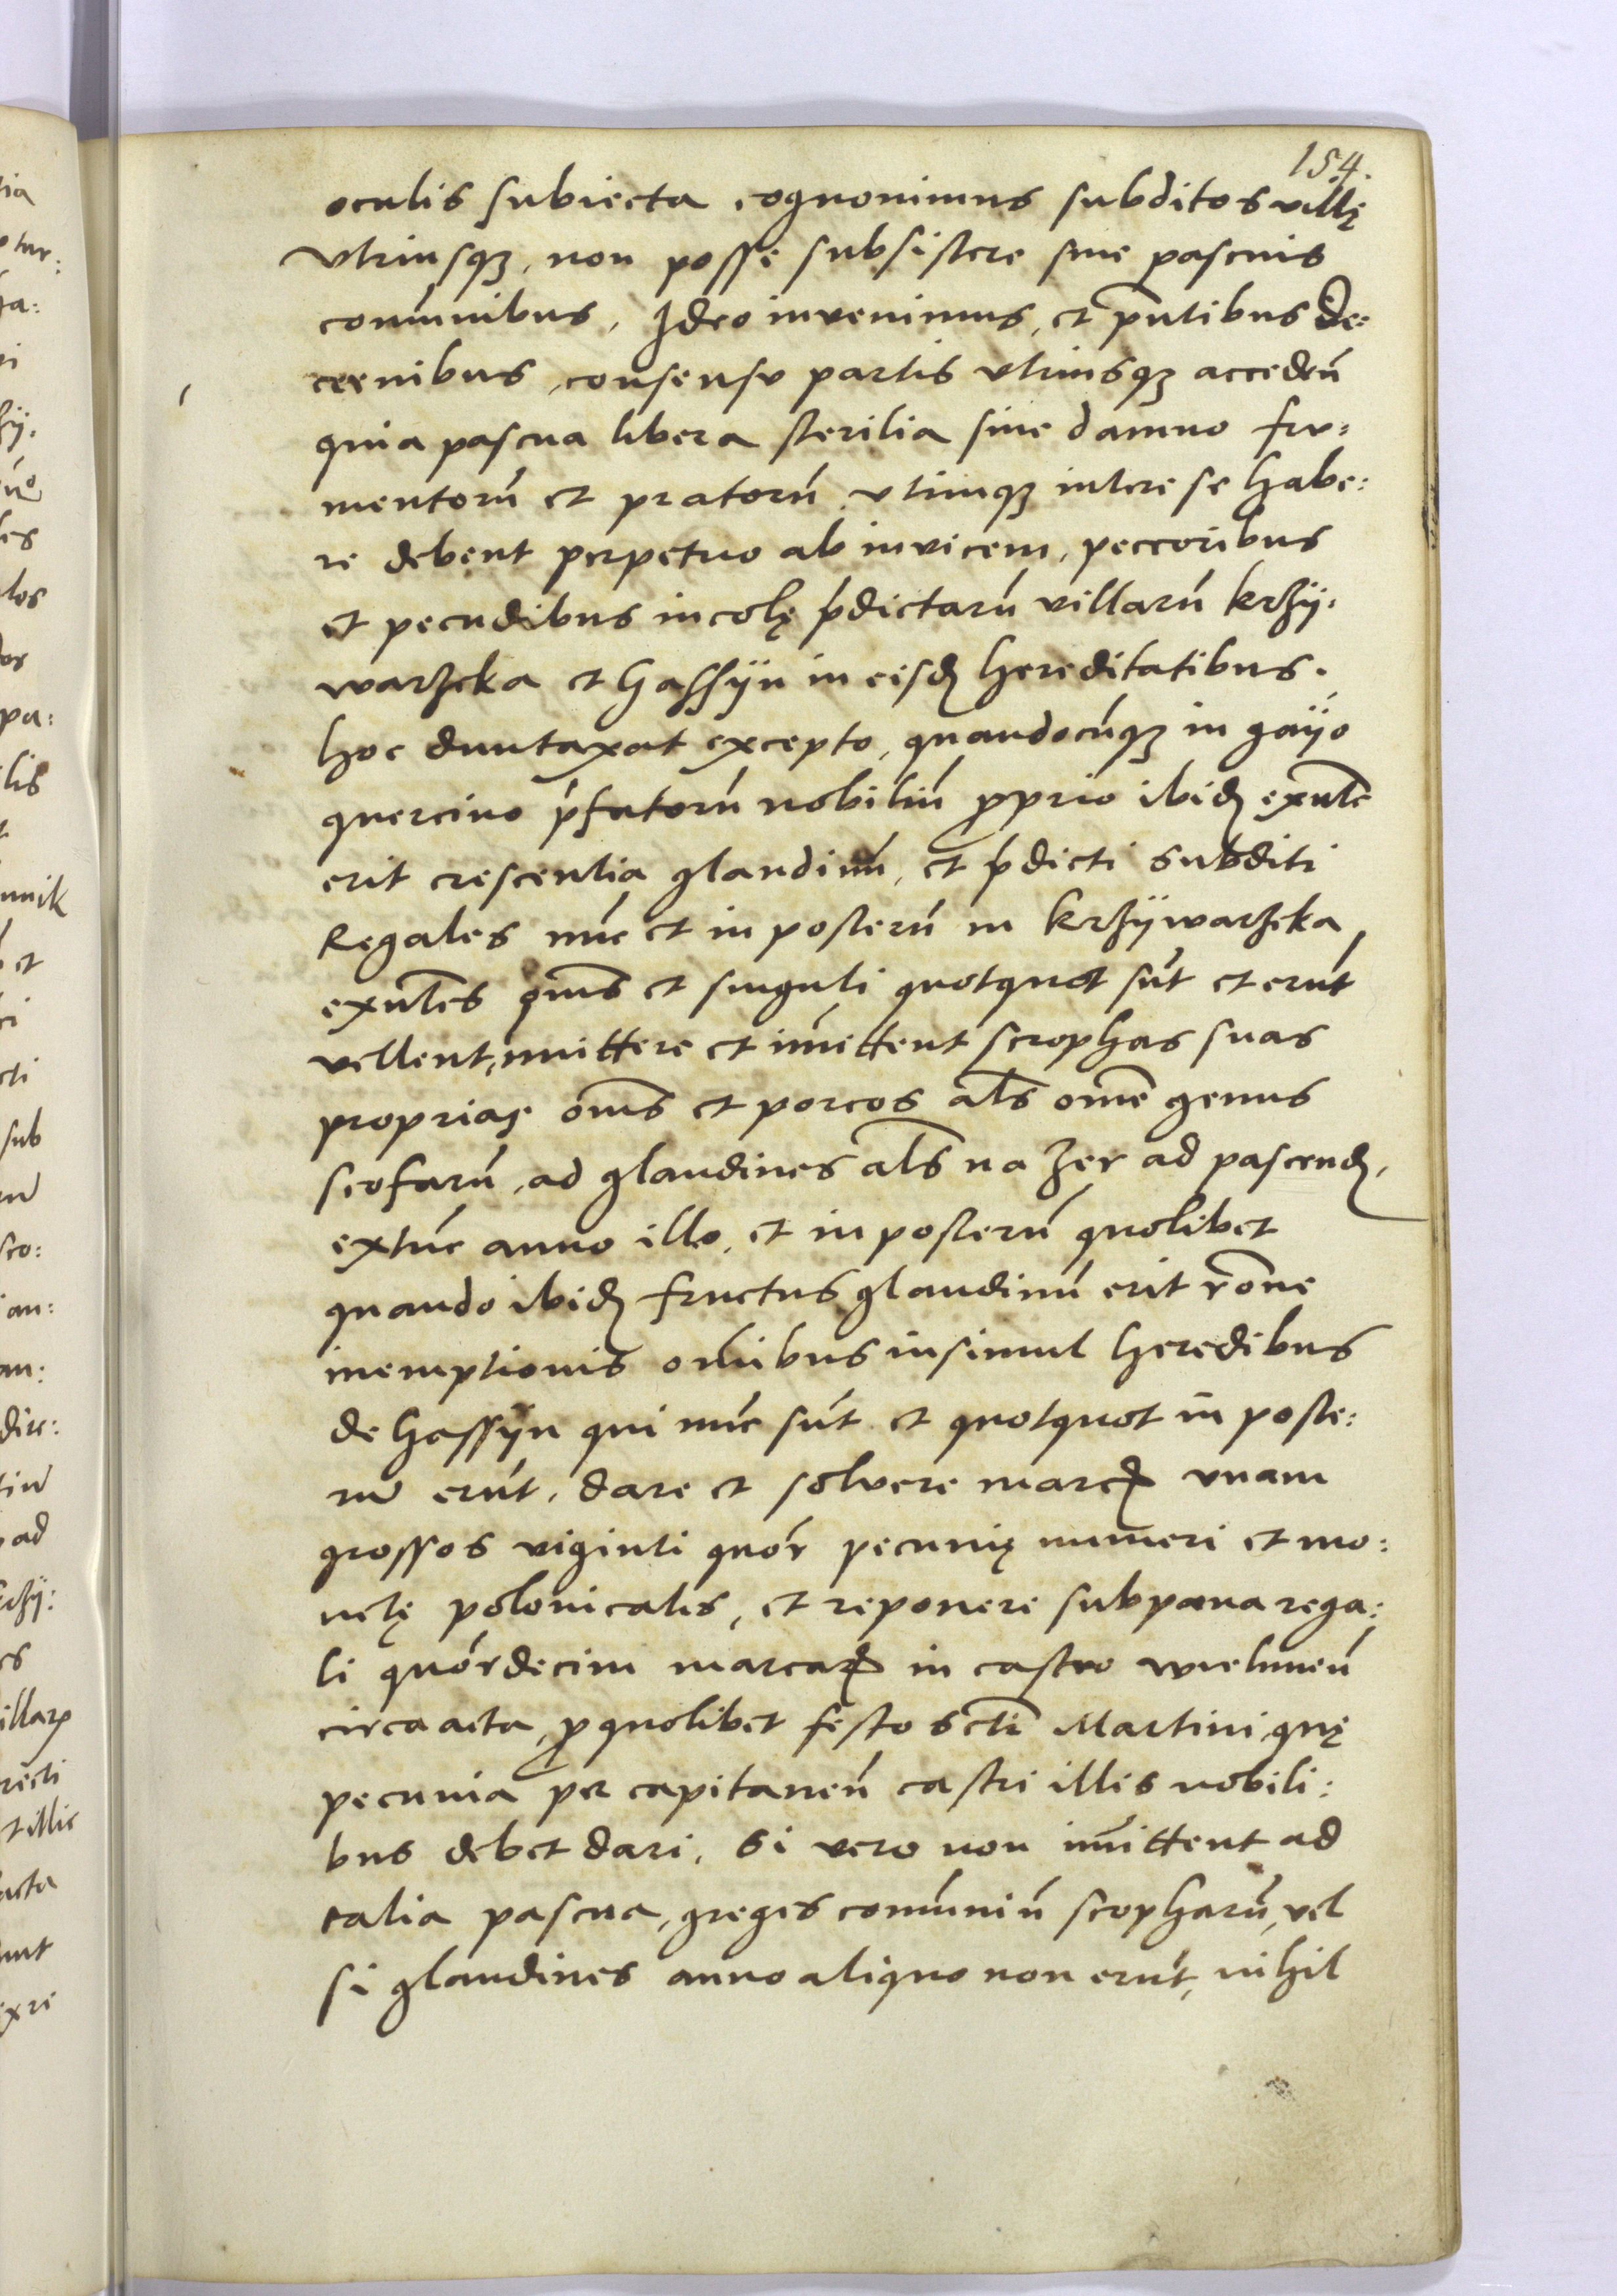 154.
oculis subiecta cognovimus subditos villę
vtriusqꝫ, non posse subsistere sine pascuis
com̄unibus, Ideo invenimus, et p̄ntibus de:
cernibus, consensv partis vtriusqꝫ acceden̄
quia pascua libera sterilia sine damno fru:
mentorū et pratorū vtrinqꝫ intere se habe:
re debent perpetuo ab invicem, peccoribus
et pecudibus incolę p̄dictarū villarū krzÿ:
warzeka et Gassÿn in eisđ hereditatibus.
hoc duntaxat excepto, quandocūqꝫ in gaÿo
quercino p̄fatorū nobiliū ꝓprio ibiđ exn̄te
erit crescentia glandinū, et p̄dicti subditi
Regales nūc et in posterū in krzÿwarzeka
exn̄tes om̄s et singuli quotquot sūt et erūt
vellent, mittere et im̄ittent scrophas suas
proprias om̄s et porcos al̄s om̄e genus
scofarū, ad glandines al̄s na zer ad pascenđ,
extūc anno illo, et in posterū quolibet
quando ibiđ fructus glandinū erit rōne
inemptionis om̄ibus insimul heredibus
de Gassÿn qui nūc sūt et quotquot in poste:
rū erūt, dare et solvere marcꝫ vnam
grossos viginti quōr pecunię numeri et mo:
netę polonicalis, et reponere sub pœna rega:
li quōrdecim marcaꝝ in castro wielunen̄
circa acta, ꝓ quolibet festo Scti Martini quę
pecunia per capitaneū castri illis nobili:
bus debet dari, Si vero non im̄ittent ad
talia pascua, greges com̄uniū scropharū, vel
si glandines anno aliquo non erūt, nihil